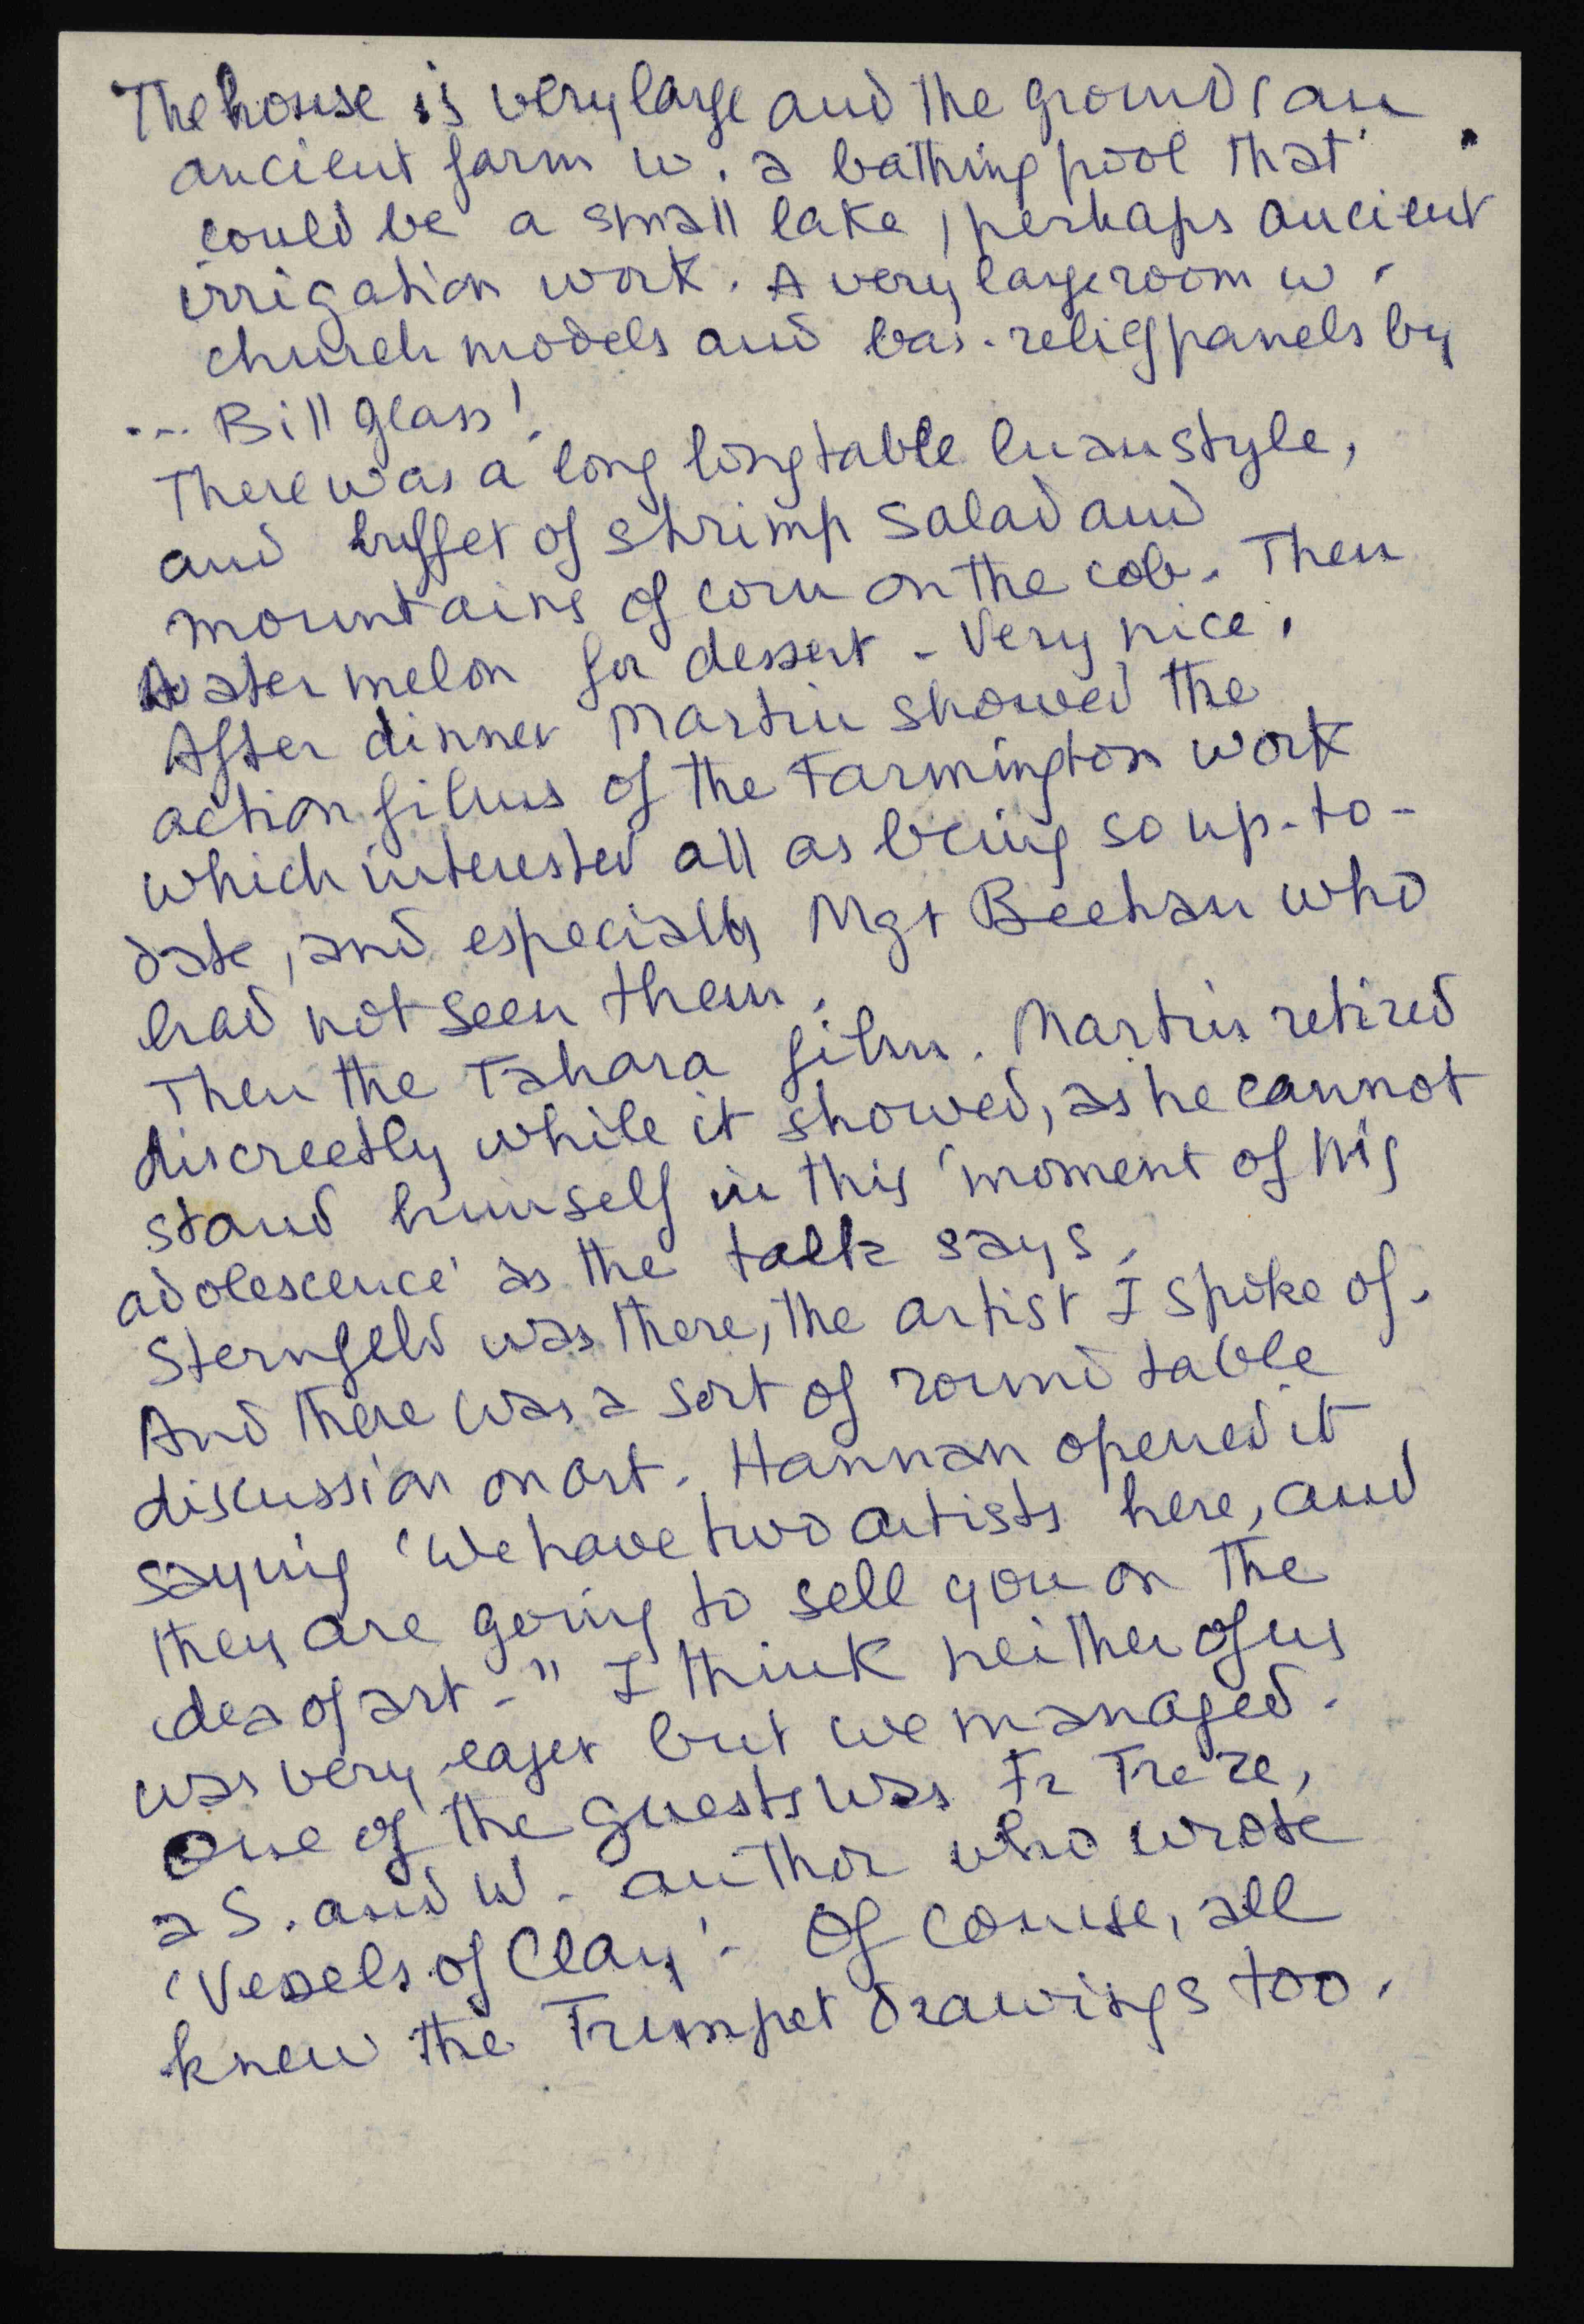 The house is very large and the grounds an
ancient farm w. a bathing pool that
could be a small lake, perhaps ancient
irrigation work. A very large room w.
church models and bas-relief panels by
... Bill Glass!
There was a long long table luau style,
and buffet of shrimp salad and
mountains of corn on the cob. Then
water melon for dessert - Very nice.
After dinner Martin showed the
action films of the Farmington work
which interested all as being so up-to-
date, and especially Mgr Beehan who
had not seen them.
Then the Tahara film. Martin retired
discreetly while it showed, as he cannot
stand himself in this 'moment of his
adolescence' as the talk says.
Sternfeld was there, the artist I spoke of.
And there was a sort of round table
discussion on art. Hannan opened it
saying 'We have two artists here, and
they are going to sell you on the
idea of art-" I think neither of us
was very eager but we managed.
One of the guests was Fr
a S. and W. author who wrote
'Vessels of Clay'. Of course, all
knew the Trumpet drawings too.